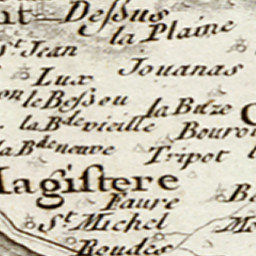 Deſsus
la Plaine
St. Jean
Lux
Jouanas
le Beſsou
la Buze
la Bde. vieille
la Bde. neuve
Tripot
Magiſtere
Faure
St. Michel
Roudès